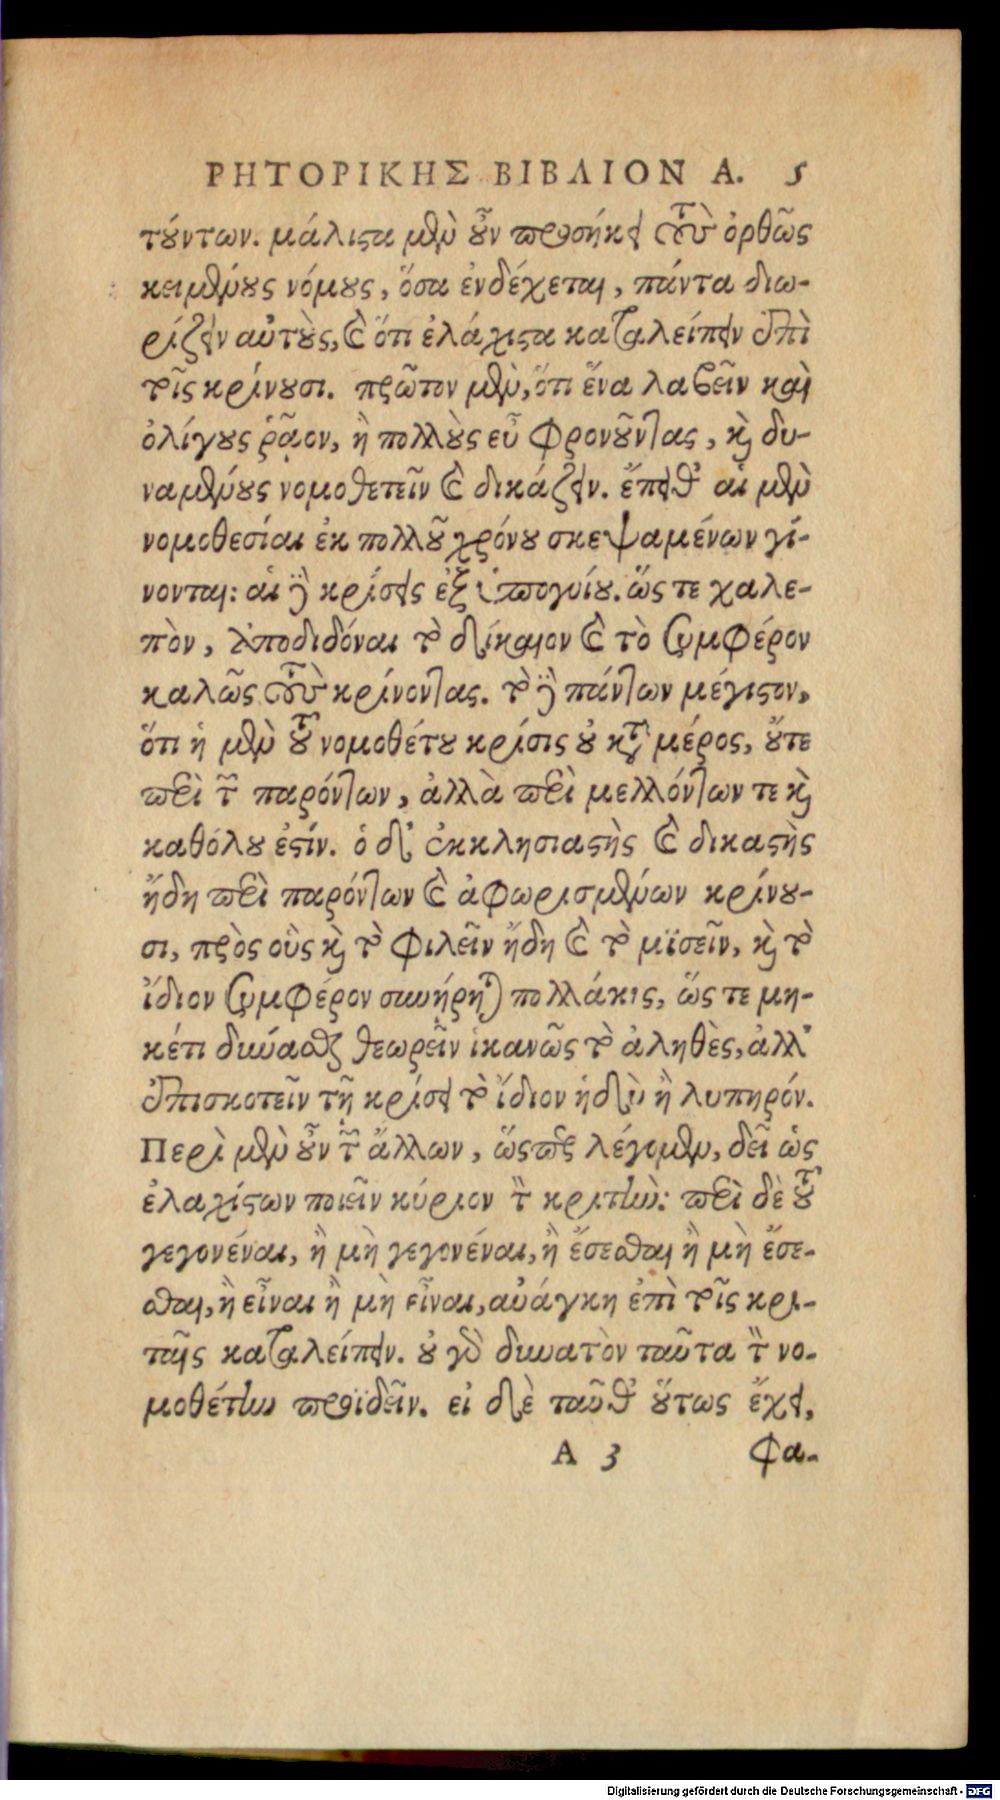 ΡΗΤΟΡΙΚΗΣ ΒΙΒΛΙΟΝ Α. 5
τούντων. μάλιστα μὲν οὖν προσήκει τοὺς ὀρθῶς
κειμένους νόμους, ὅσα ἐνδέχεται, πάντα διω-
ρίζειν αὐτοὺς, καὶ ὅτι ἐλάχιστα καταλείπειν ἐπὶ
τοῖς κρίνουσι. πρῶτον μὲν, ὅτι ἕνα λαβεῖν καὶ
ὀλίγους ῥᾷον, ἢ πολλοὺς εὖ φρονοῦντας, καὶ δυ-
ναμένους νομοθετεῖν καὶ δικάζειν. ἔπειθ' αἱ μὲν
νομοθεσίαι ἐκ πολλοῦ χρόνου σκεψαμένων γί-
νονται: αἱ δὲ κρίσεις ἐξ ὑπογυίου. ὥς τε χαλε-
πὸν, ἀποδιδόναι τὸ δίκαιον καὶ τὸ συμφέρον
καλῶς τοὺς κρίνοντας. τὸ δὲ πάντων μέγιστον,
ὅτι ἡ μὲν τοῦ νομοθέτου κρίσις οὐ κατὰ μέρος, οὔτε
περὶ τῶν παρόντων, ἀλλὰ περὶ μελλόντων τε καὶ
καθόλου ἐστίν. ὁ δ' ἐκκλησιαστὴς καὶ δικαστὴς
ἤδη περὶ παρόντων καὶ ἀφωρισμένων κρίνου-
σι, πρὸς οὓς καὶ τὸ φιλεῖν ἤδη καὶ τὸ μϊσεῖν, καὶ τὸ
ἴδιον συμφέρον συνήρηται πολλάκις, ὥς τε μη-
κέτι δύνασθαι θεωρεῖν ἱκανῶς τὸ ἀληθὲς, ἀλλ'
ἐπισκοτεῖν τῇ κρίσει τὸ ἴδιον ἡδὺ ἢ λυπηρόν.
Περὶ μὲν οὖν τῶν ἄλλων, ὥσπερ λέγομεν, δεῖ ὡς
ἐλαχίστων ποιεῖν κύριον τὸν κριτήν: περὶ δὲ τοῦ
γεγονέναι, ἢ μὴ γεγονέναι, ἢ ἔσεσθαι ἢ μὴ ἔσε-
σθαι, ἢ εἶναι ἢ μὴ εἶναι, ἀνάγκη ἐπὶ τοῖς κρι-
ταῖς καταλείπειν. οὐ γὰρ δυνατὸν ταῦτα τὸν νο-
μοθέτην προϊδεῖν. εἰ δὲ ταῦθ' οὕτως ἔχει,
Α 3 φα-
Digitalisierung gefördert durch die Deutsche Forschungsgemeinschaft - DFG